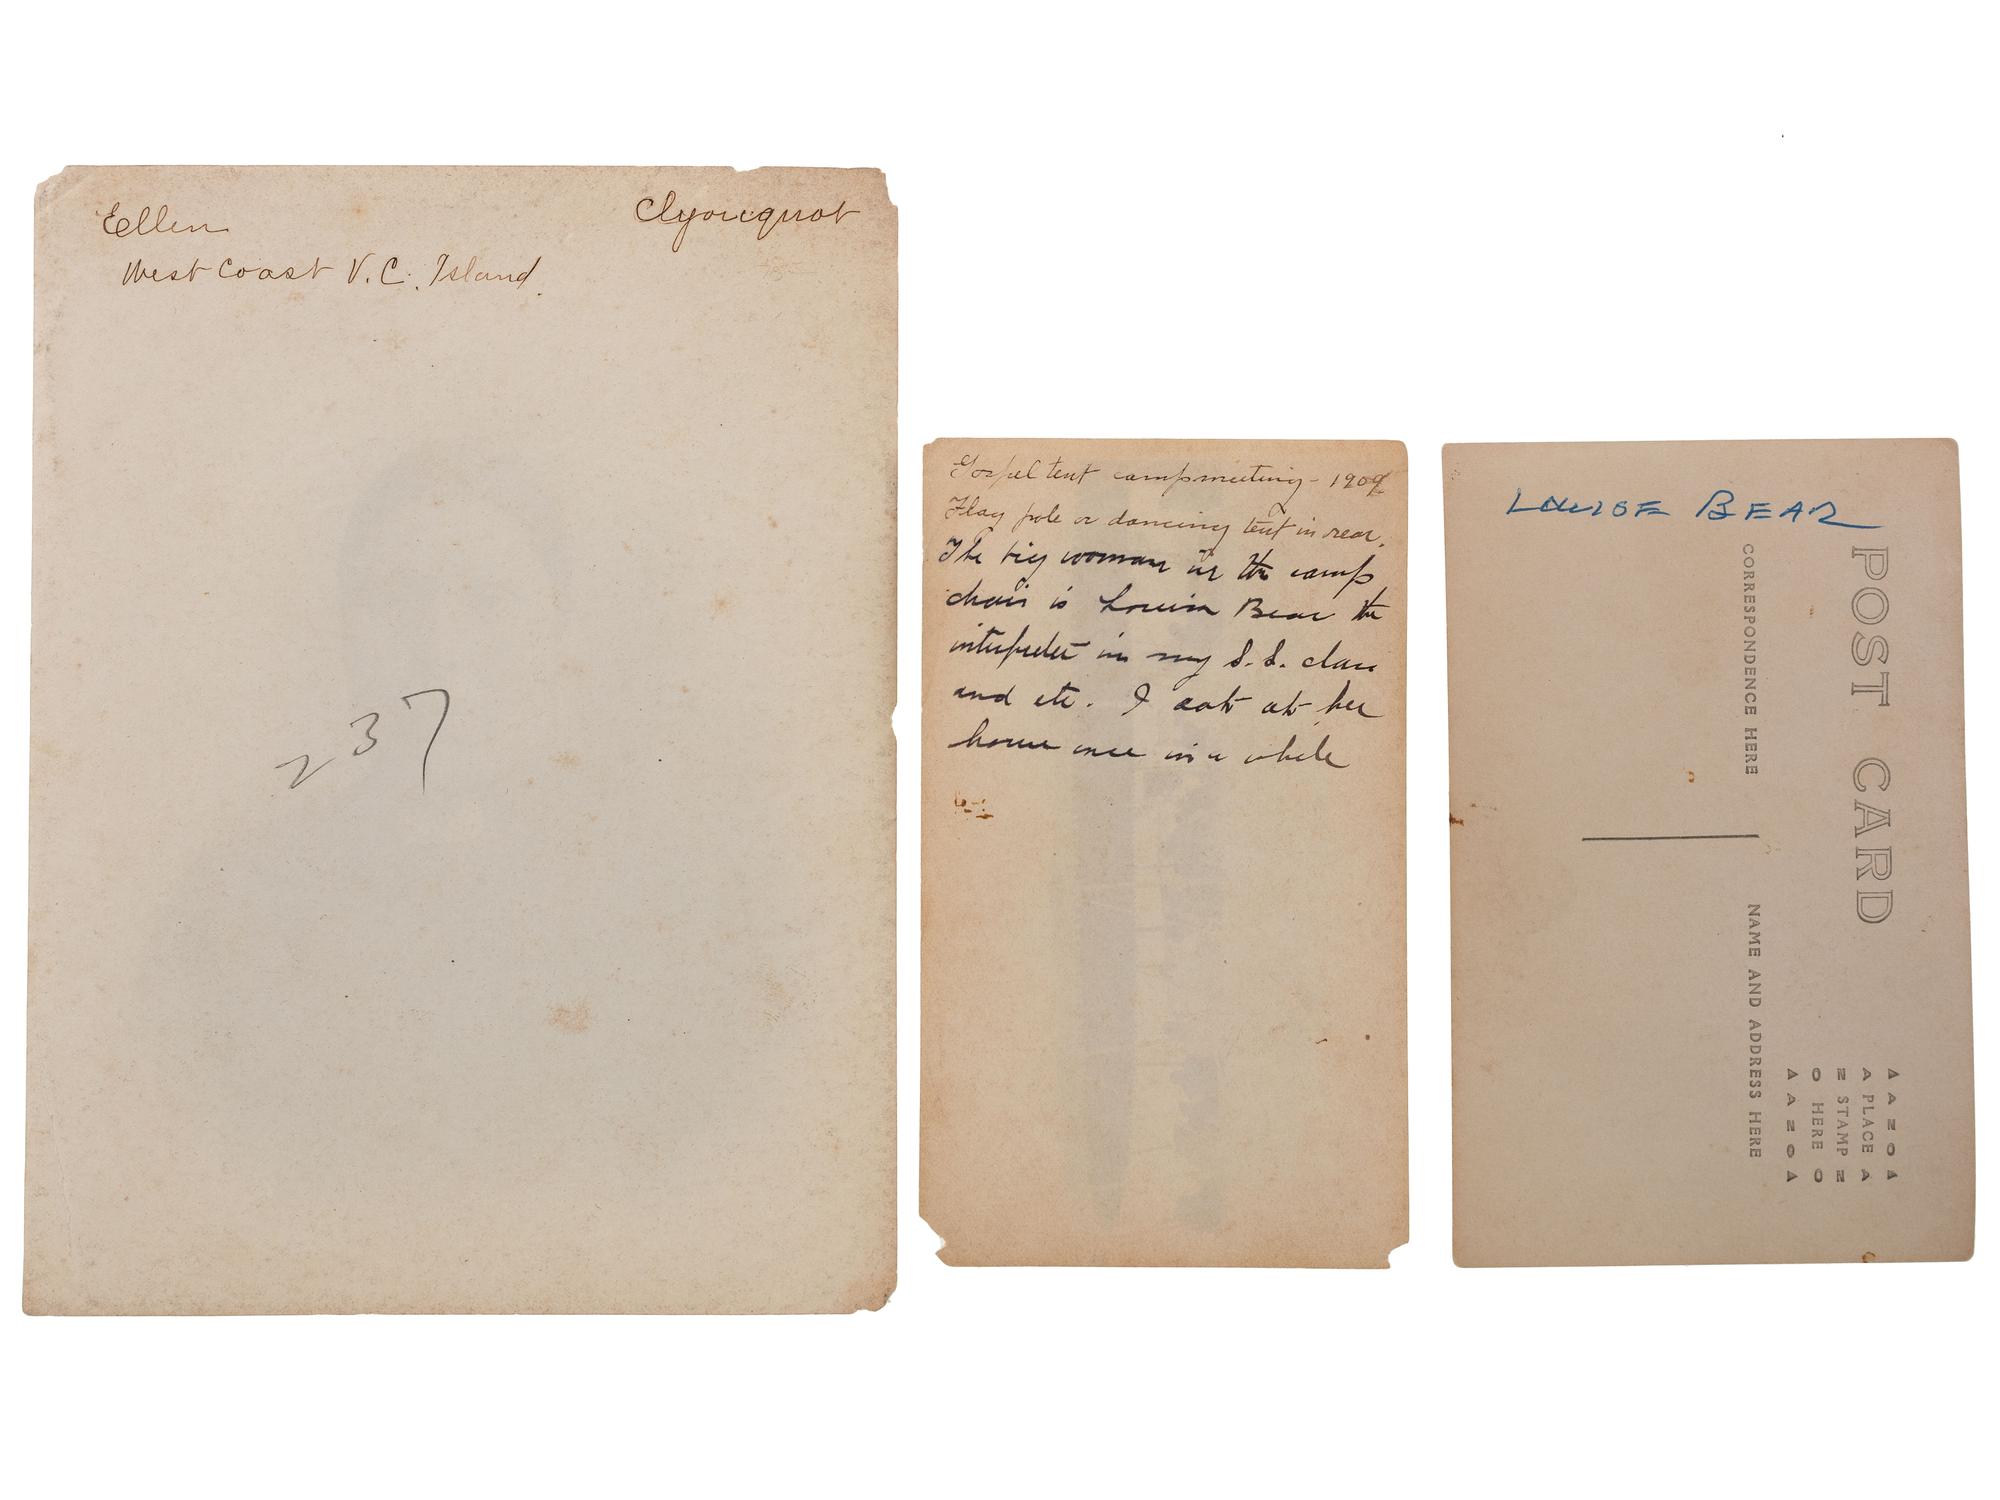 Ellen
Clyoucquot
West Coast V.C. Island.
237
Gospel tent campmeeting - 1909
Flag pole or dancing tent in rear.
The big woman in the camp
chair is Louisa Bear the
interpreter in my S.S. class
and etc. I eat at her
house once in a while
LOUISE BEAR
POST CARD
CORRESPONDENCE HERE
NAME AND ADDRESS HERE
AZOA
PLACE
STAMP
HERE
AZOA